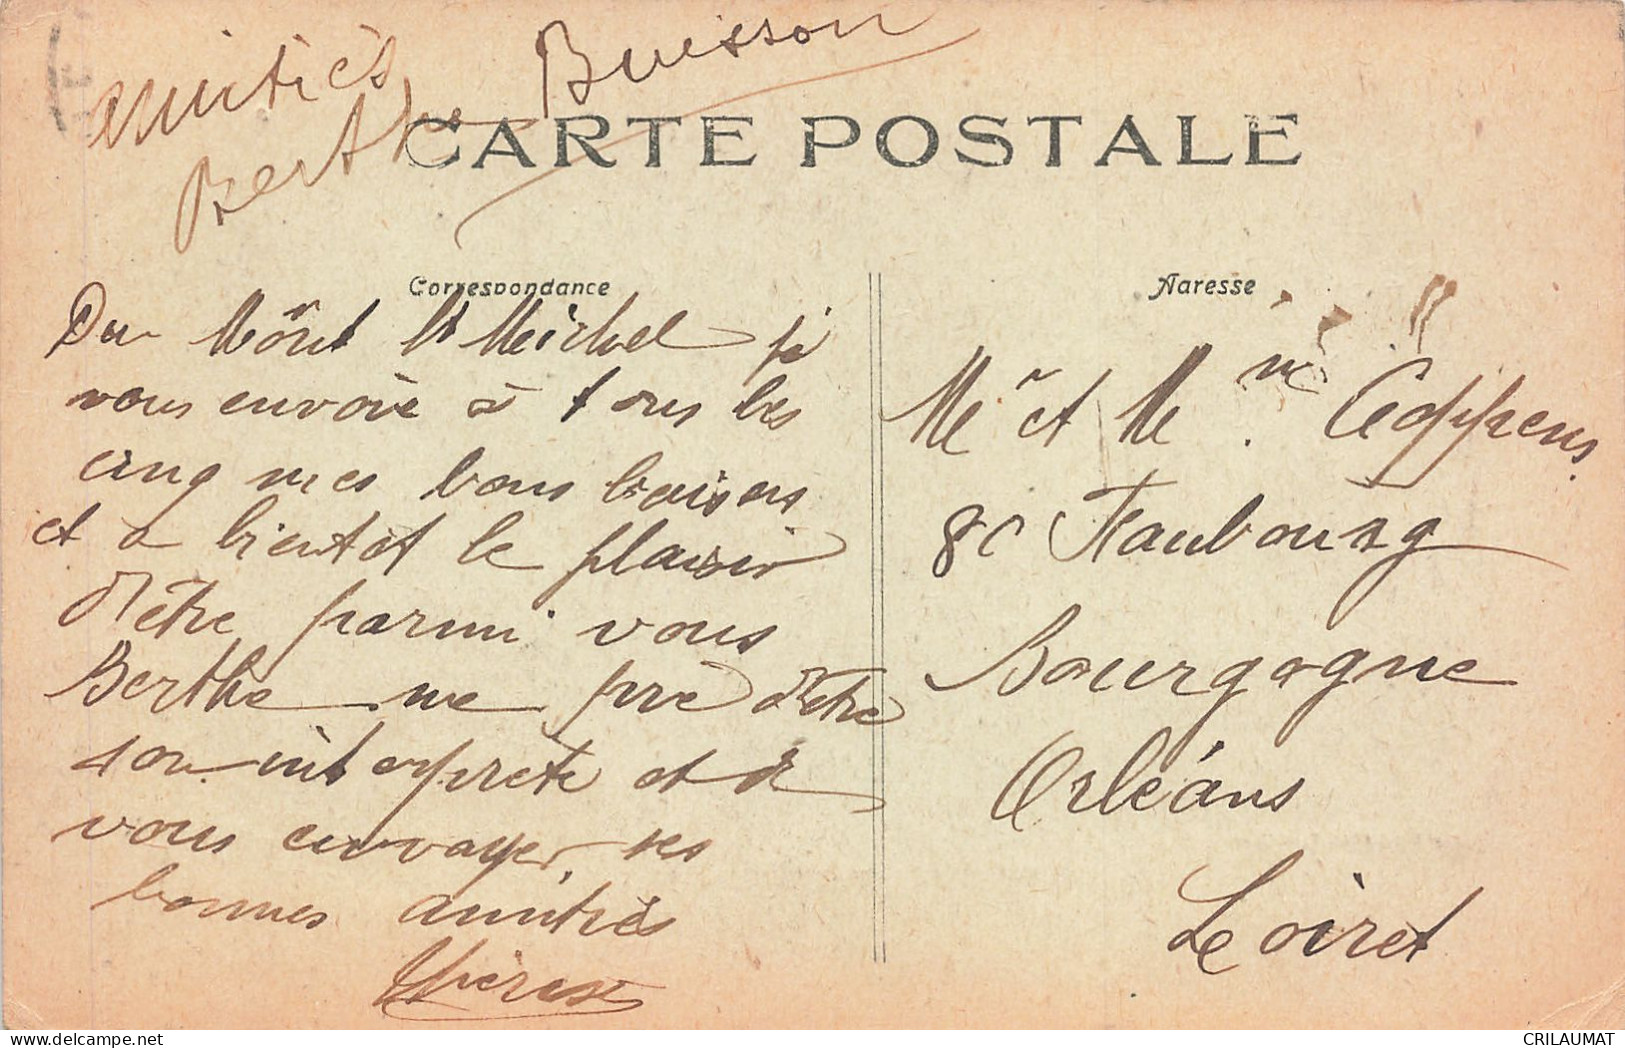 amitiés
Berthe Buisson
CARTE POSTALE
Correspondance
Du Mônt St Meichel je
vous envoie à tous les
cinq mes bons baisers
et a bientôt le plaisir
d'être parmi vous
Berthe me prie d'être
son interprète et de
vous envoyer ses
bonnes amitiés
Adresse
Mr et Mme Ceppens
80 Faubourg
Bourgogne
Orléans
Loiret
delcampe.net
CRILAUMAT